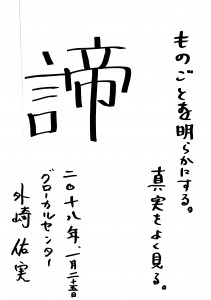 ものごとを明らかにする。
真実をよく見る。
諦
二〇十八年、一月二十二日
グローカルセンター
外崎 佑実